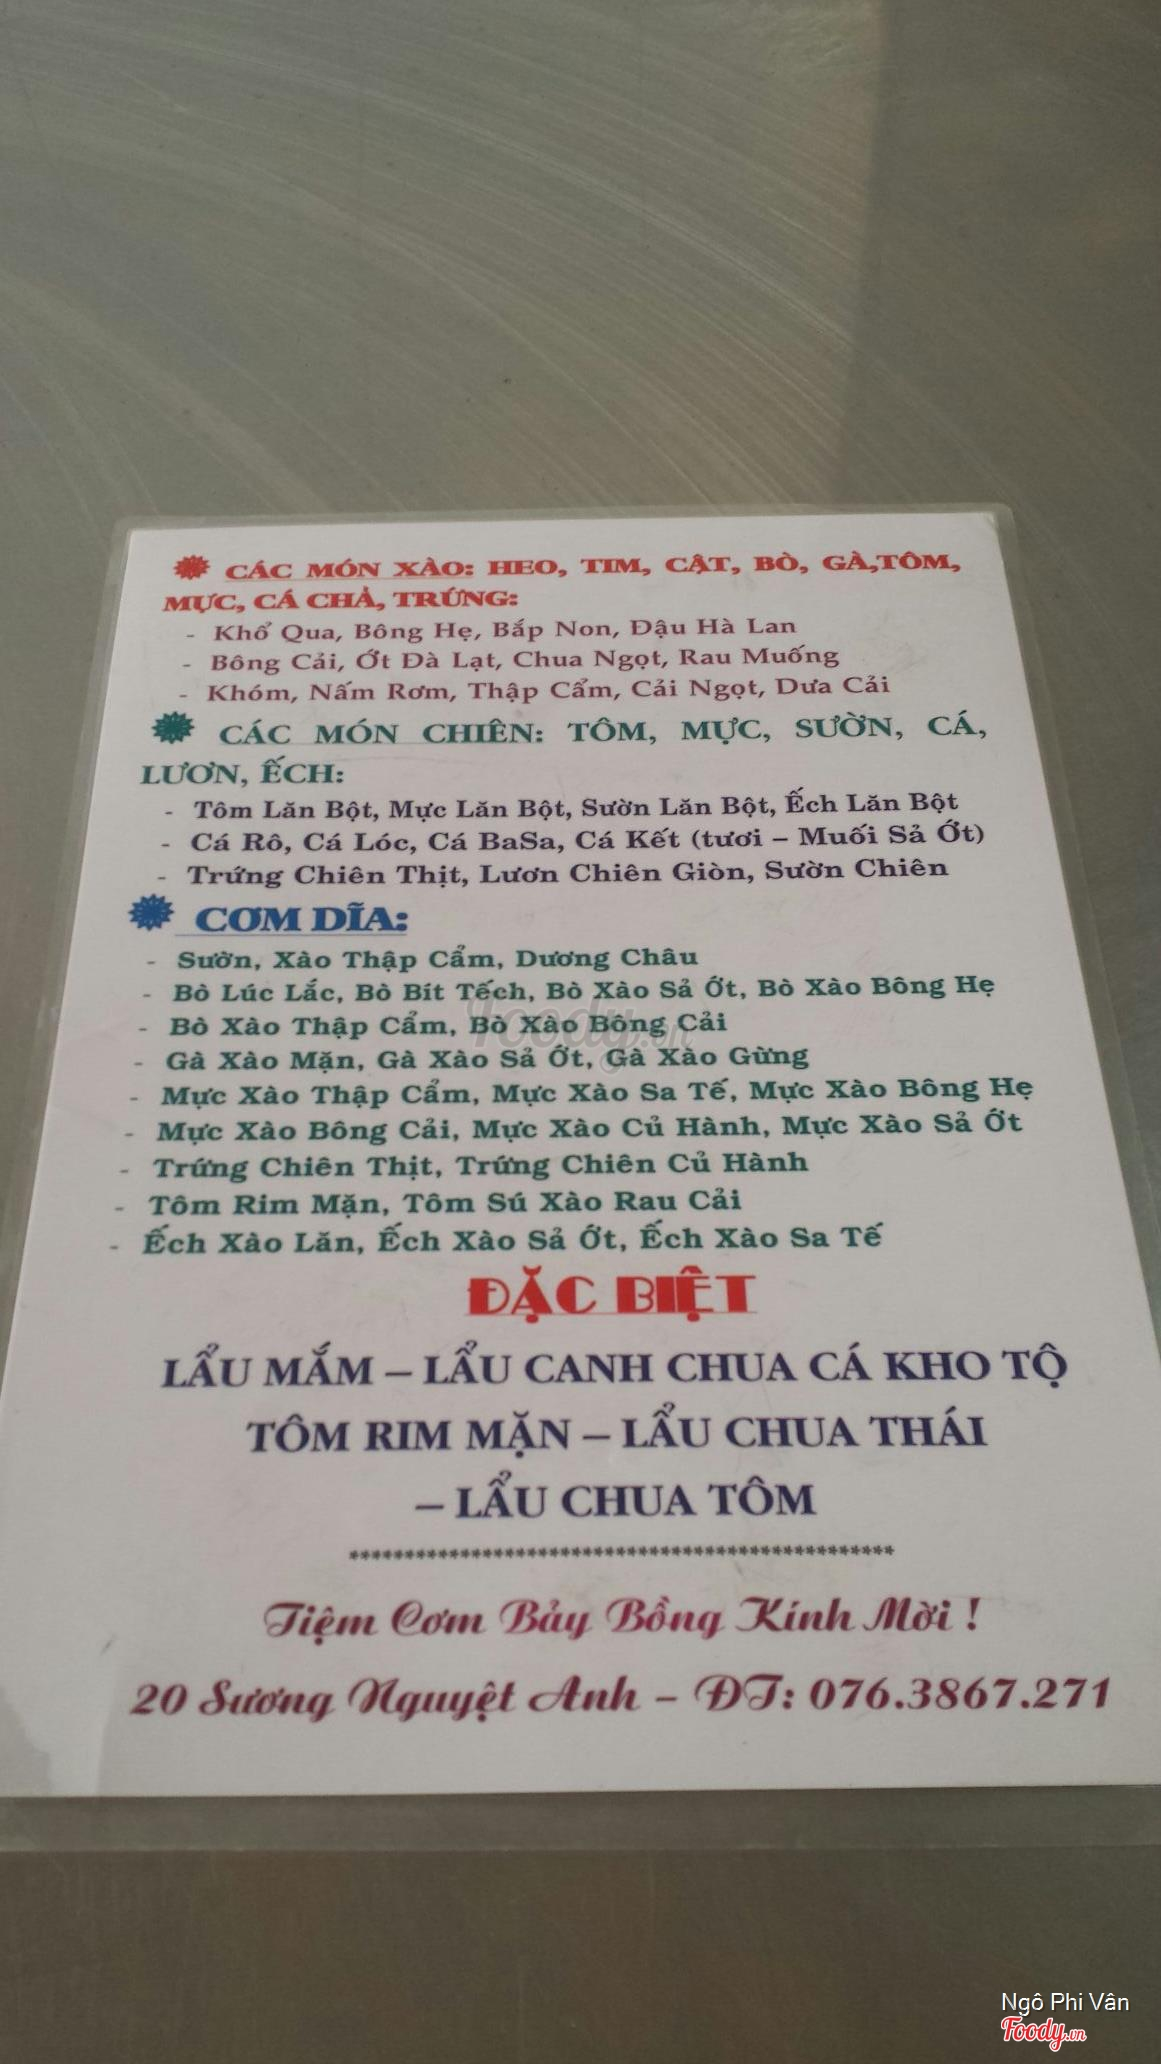 CÁC MÓN XÀO: HEO, TIM, CẬT, BÒ, GÀ,TÔM,
MỰC, CÁ CHẢ, TRỨNG:
- Khổ Qua, Bông Hẹ, Bắp Non, Đậu Hà Lan
- Bông Cải, Ớt Đà Lạt, Chua Ngọt, Rau Muống
- Khóm, Nấm Rơm, Thập Cẩm, Cải Ngọt, Dưa Cải
CÁC MÓN CHIÊN: TÔM, MỰC, SƯỜN, CÁ,
LƯƠN, ẾCH:
- Tôm Lăn Bột, Mực Lăn Bột, Sườn Lăn Bột, Ếch Lăn Bột
- Cá Rô, Cá Lóc, Cá BaSa, Cá Kết (tươi – Muối Sả Ớt)
- Trứng Chiên Thịt, Lươn Chiên Giòn, Sườn Chiên
CƠM DĨA:
- Sườn, Xào Thập Cẩm, Dương Châu
- Bò Lúc Lắc, Bò Bít Tếch, Bò Xào Sả Ớt, Bò Xào Bông Hẹ
- Bò Xào Thập Cẩm, Bò Xào Bông Cải
- Gà Xào Mặn, Gà Xào Sả Ớt, Gà Xào Gừng
- Mực Xào Thập Cẩm, Mực Xào Sa Tế, Mực Xào Bông Hẹ
- Mực Xào Bông Cải, Mực Xào Củ Hành, Mực Xào Sả Ớt
- Trứng Chiên Thịt, Trứng Chiên Củ Hành
- Tôm Rim Mặn, Tôm Sú Xào Rau Cải
- Ếch Xào Lăn, Ếch Xào Sả Ớt, Ếch Xào Sa Tế
ĐẶC BIỆT
LẨU MẮM – LẨU CANH CHUA CÁ KHO TỘ
TÔM RIM MẶN – LẨU CHUA THÁI
– LẨU CHUA TÔM
Tiệm Cơm Bảy Bồng Kính Mời !
20 Sương Nguyệt Anh – ĐT: 076.3867.271
Foody.vn
Ngô Phi Vân
Foody.vn